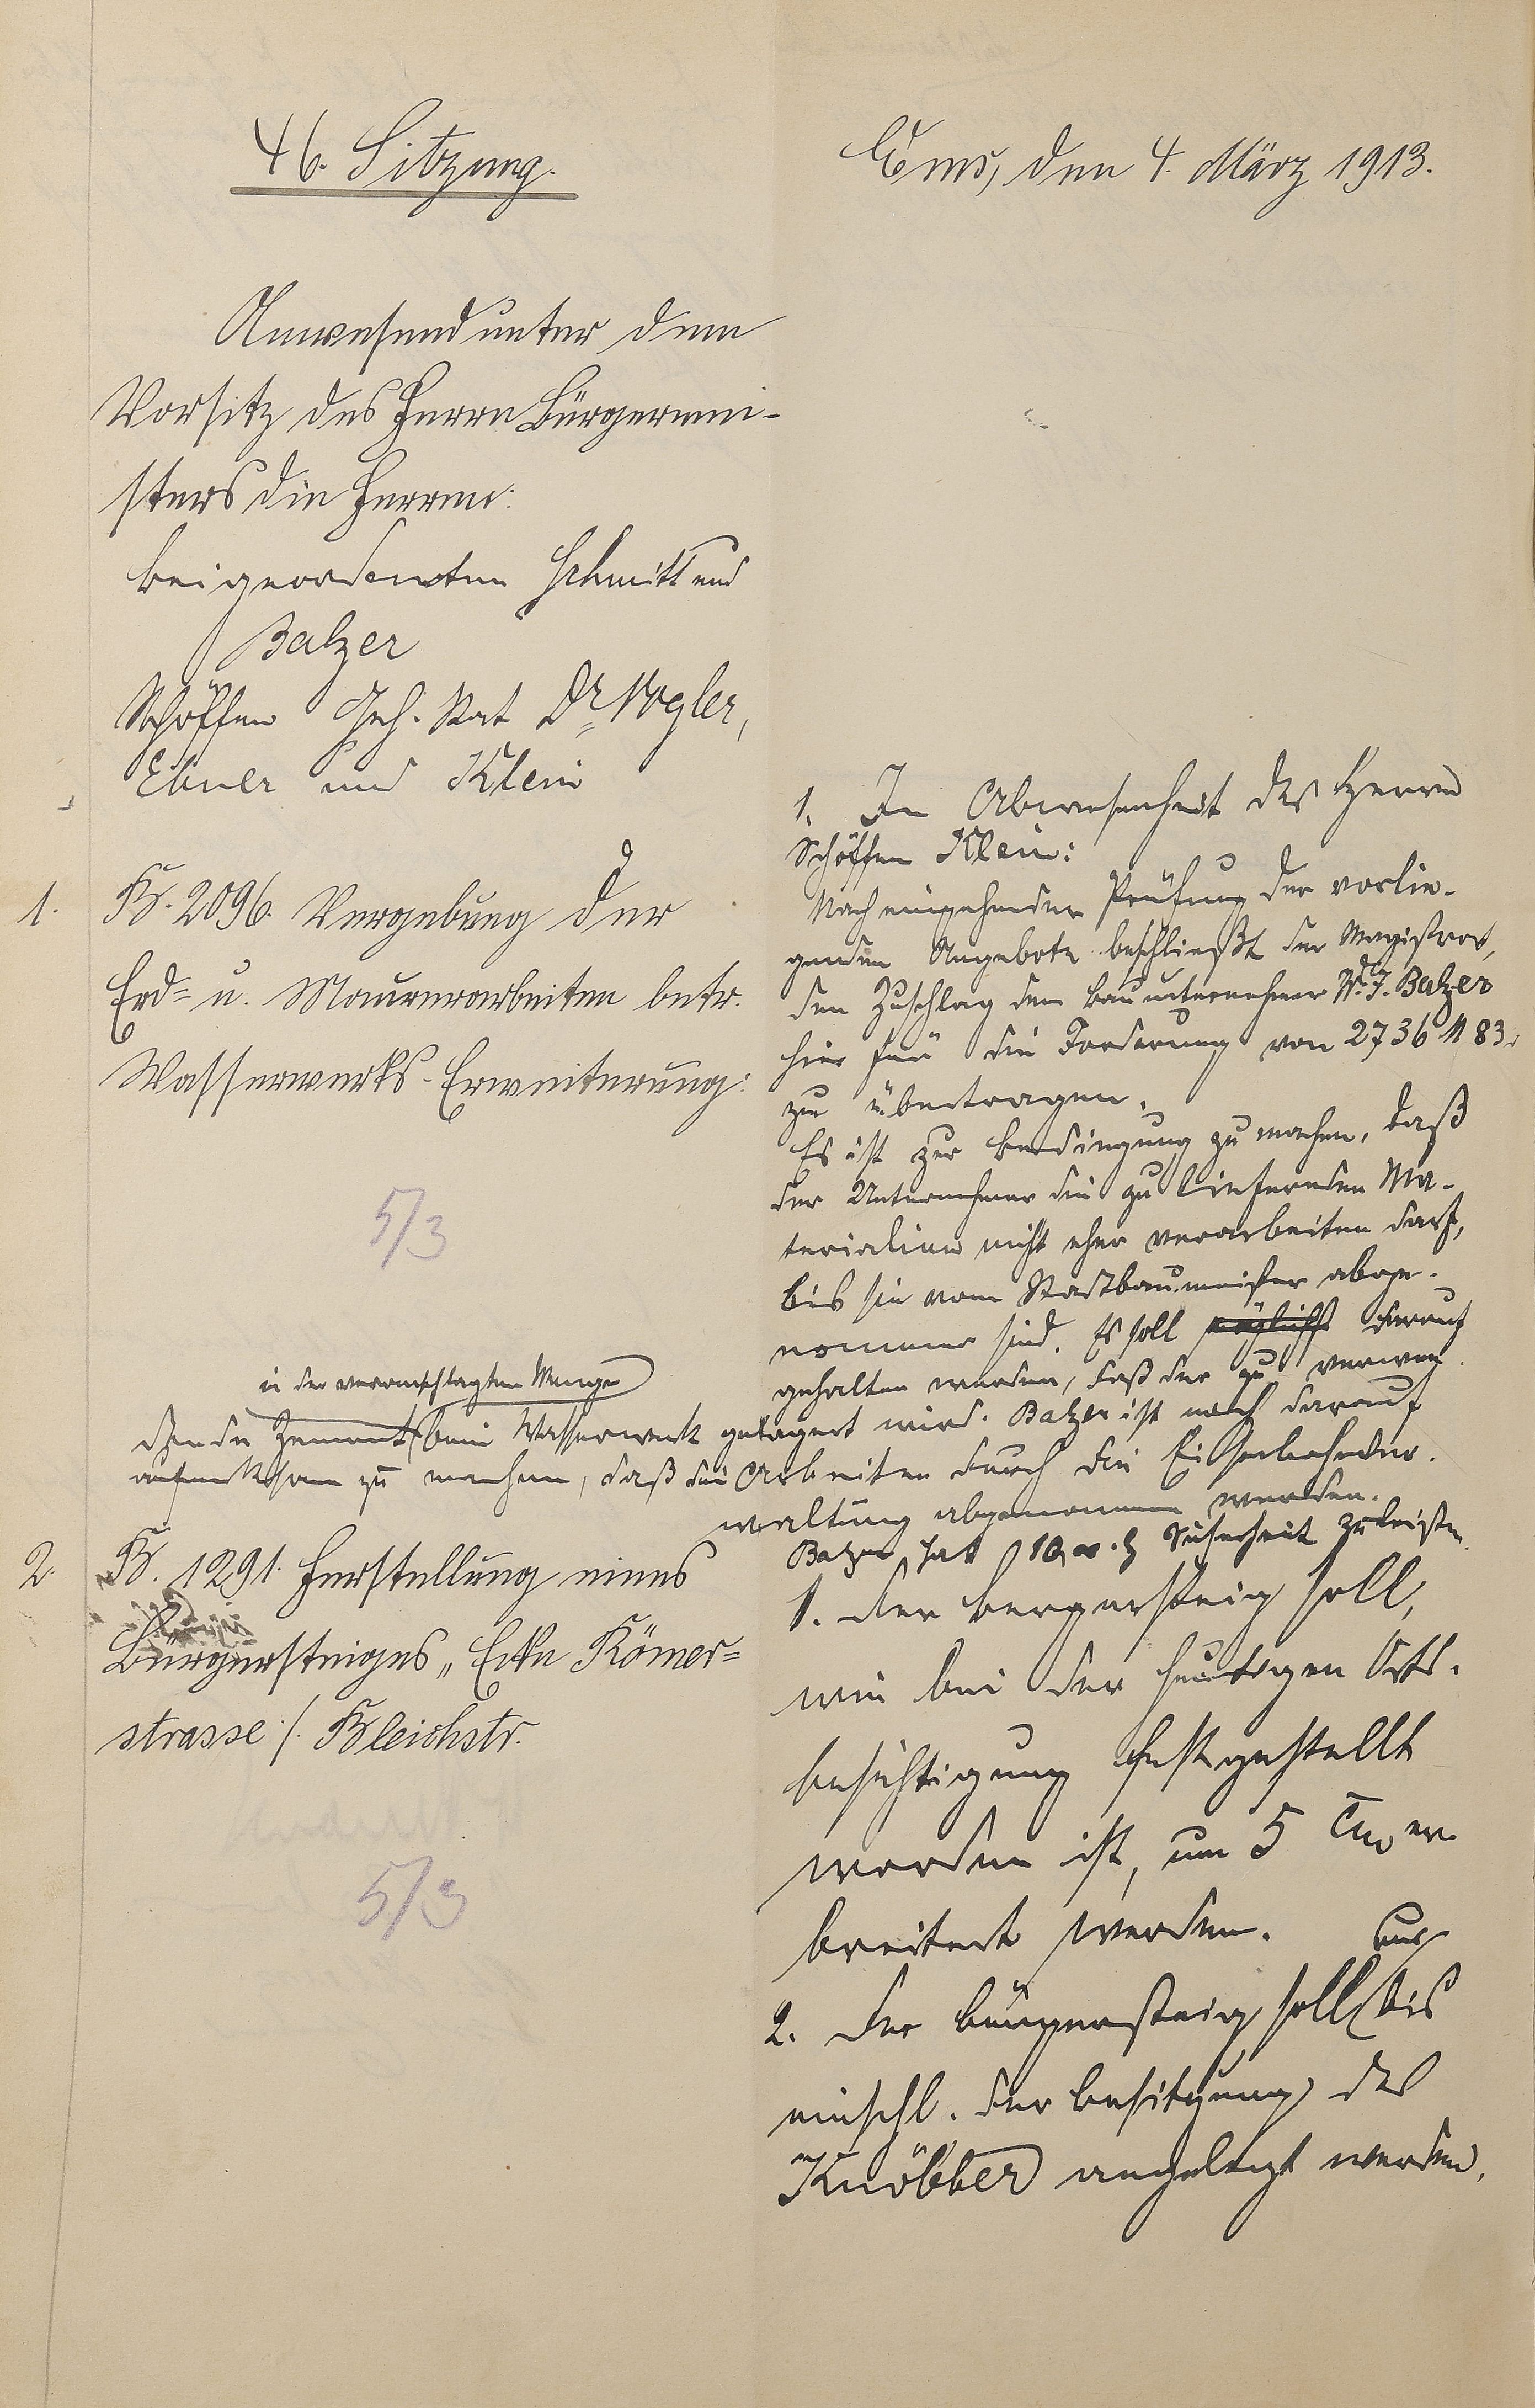 46. Sitzung.
Ems, den 4. März 1913.
Anwesend unter dem
Vorsitz des Herrn Bürgermei-
sters die Herren:
Beigeordneten Schmitt und
Balzer
Schöffen Geh. Rat Dr. Vogler,
Ebner und Klein
1. B. 2096. Vergebung der
Erd- u. Maurerarbeiten betr.
Wasserwerks-Erweiterung:
5/3
1. In Abwesenheit des Herrn
Schöffen Klein:
Nach eingehender Prüfung der vorlie-
genden Angebote beschließt der Magistrat,
den Zuschlag dem Bauunternehmer W. J. Balzer
hier für die Forderung von 2736 M 83
zu übertragen.
Es ist zur Bedingung zu machen, daß
der Unternehmer die zu liefernden Ma-
terialien nicht eher verarbeiten darf,
bis sie vom Stadtbaumeister abge-
nommen sind. Es soll möglichst darauf
gehalten werden, daß der zu verwen-
in der veranschlagten Menge
dende Zement beim Wasserwerk gelagert wird. Balzer ist noch darauf
aufmerksam zu machen, daß die Arbeiten durch die Eisenbahnver-
waltung abgenommen werden.
Balzer hat Sicherheit zu leisten.
2. B. 1291. Herstellung eines
Bürgersteiges „Ecke Römer-
strasse /. Bleichstr.
5/3
1. Der Bürgersteig soll,
wie bei der heutigen Orts-
besichtigung festgestellt
worden ist, um 5 cm ver-
breitert werden.
nur
2. Der Bürgersteig soll bis
einschl. der Besitzung des
Knöbber angelegt werden.